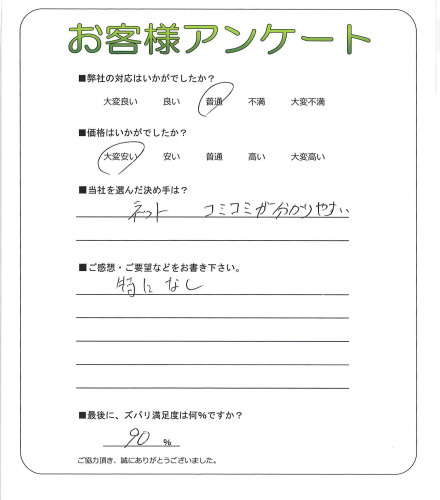 お客様アンケート
■弊社の対応はいかがでしたか?
大変良い 良い 普通 不満 大変不満
■価格はいかがでしたか?
大変安い 安い 普通 高い 大変高い
■当社を選んだ決め手は?
ネット コミコミが分かりやすい
■ご感想・ご要望などをお書き下さい。
特になし
■最後に、ズバリ満足度は何%ですか?
90 %
ご協力頂き、誠にありがとうございました。